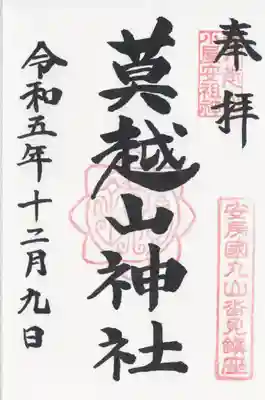 奉拝
莫越山神社
令和五年十二月九日
安房國丸山沓見鎮座